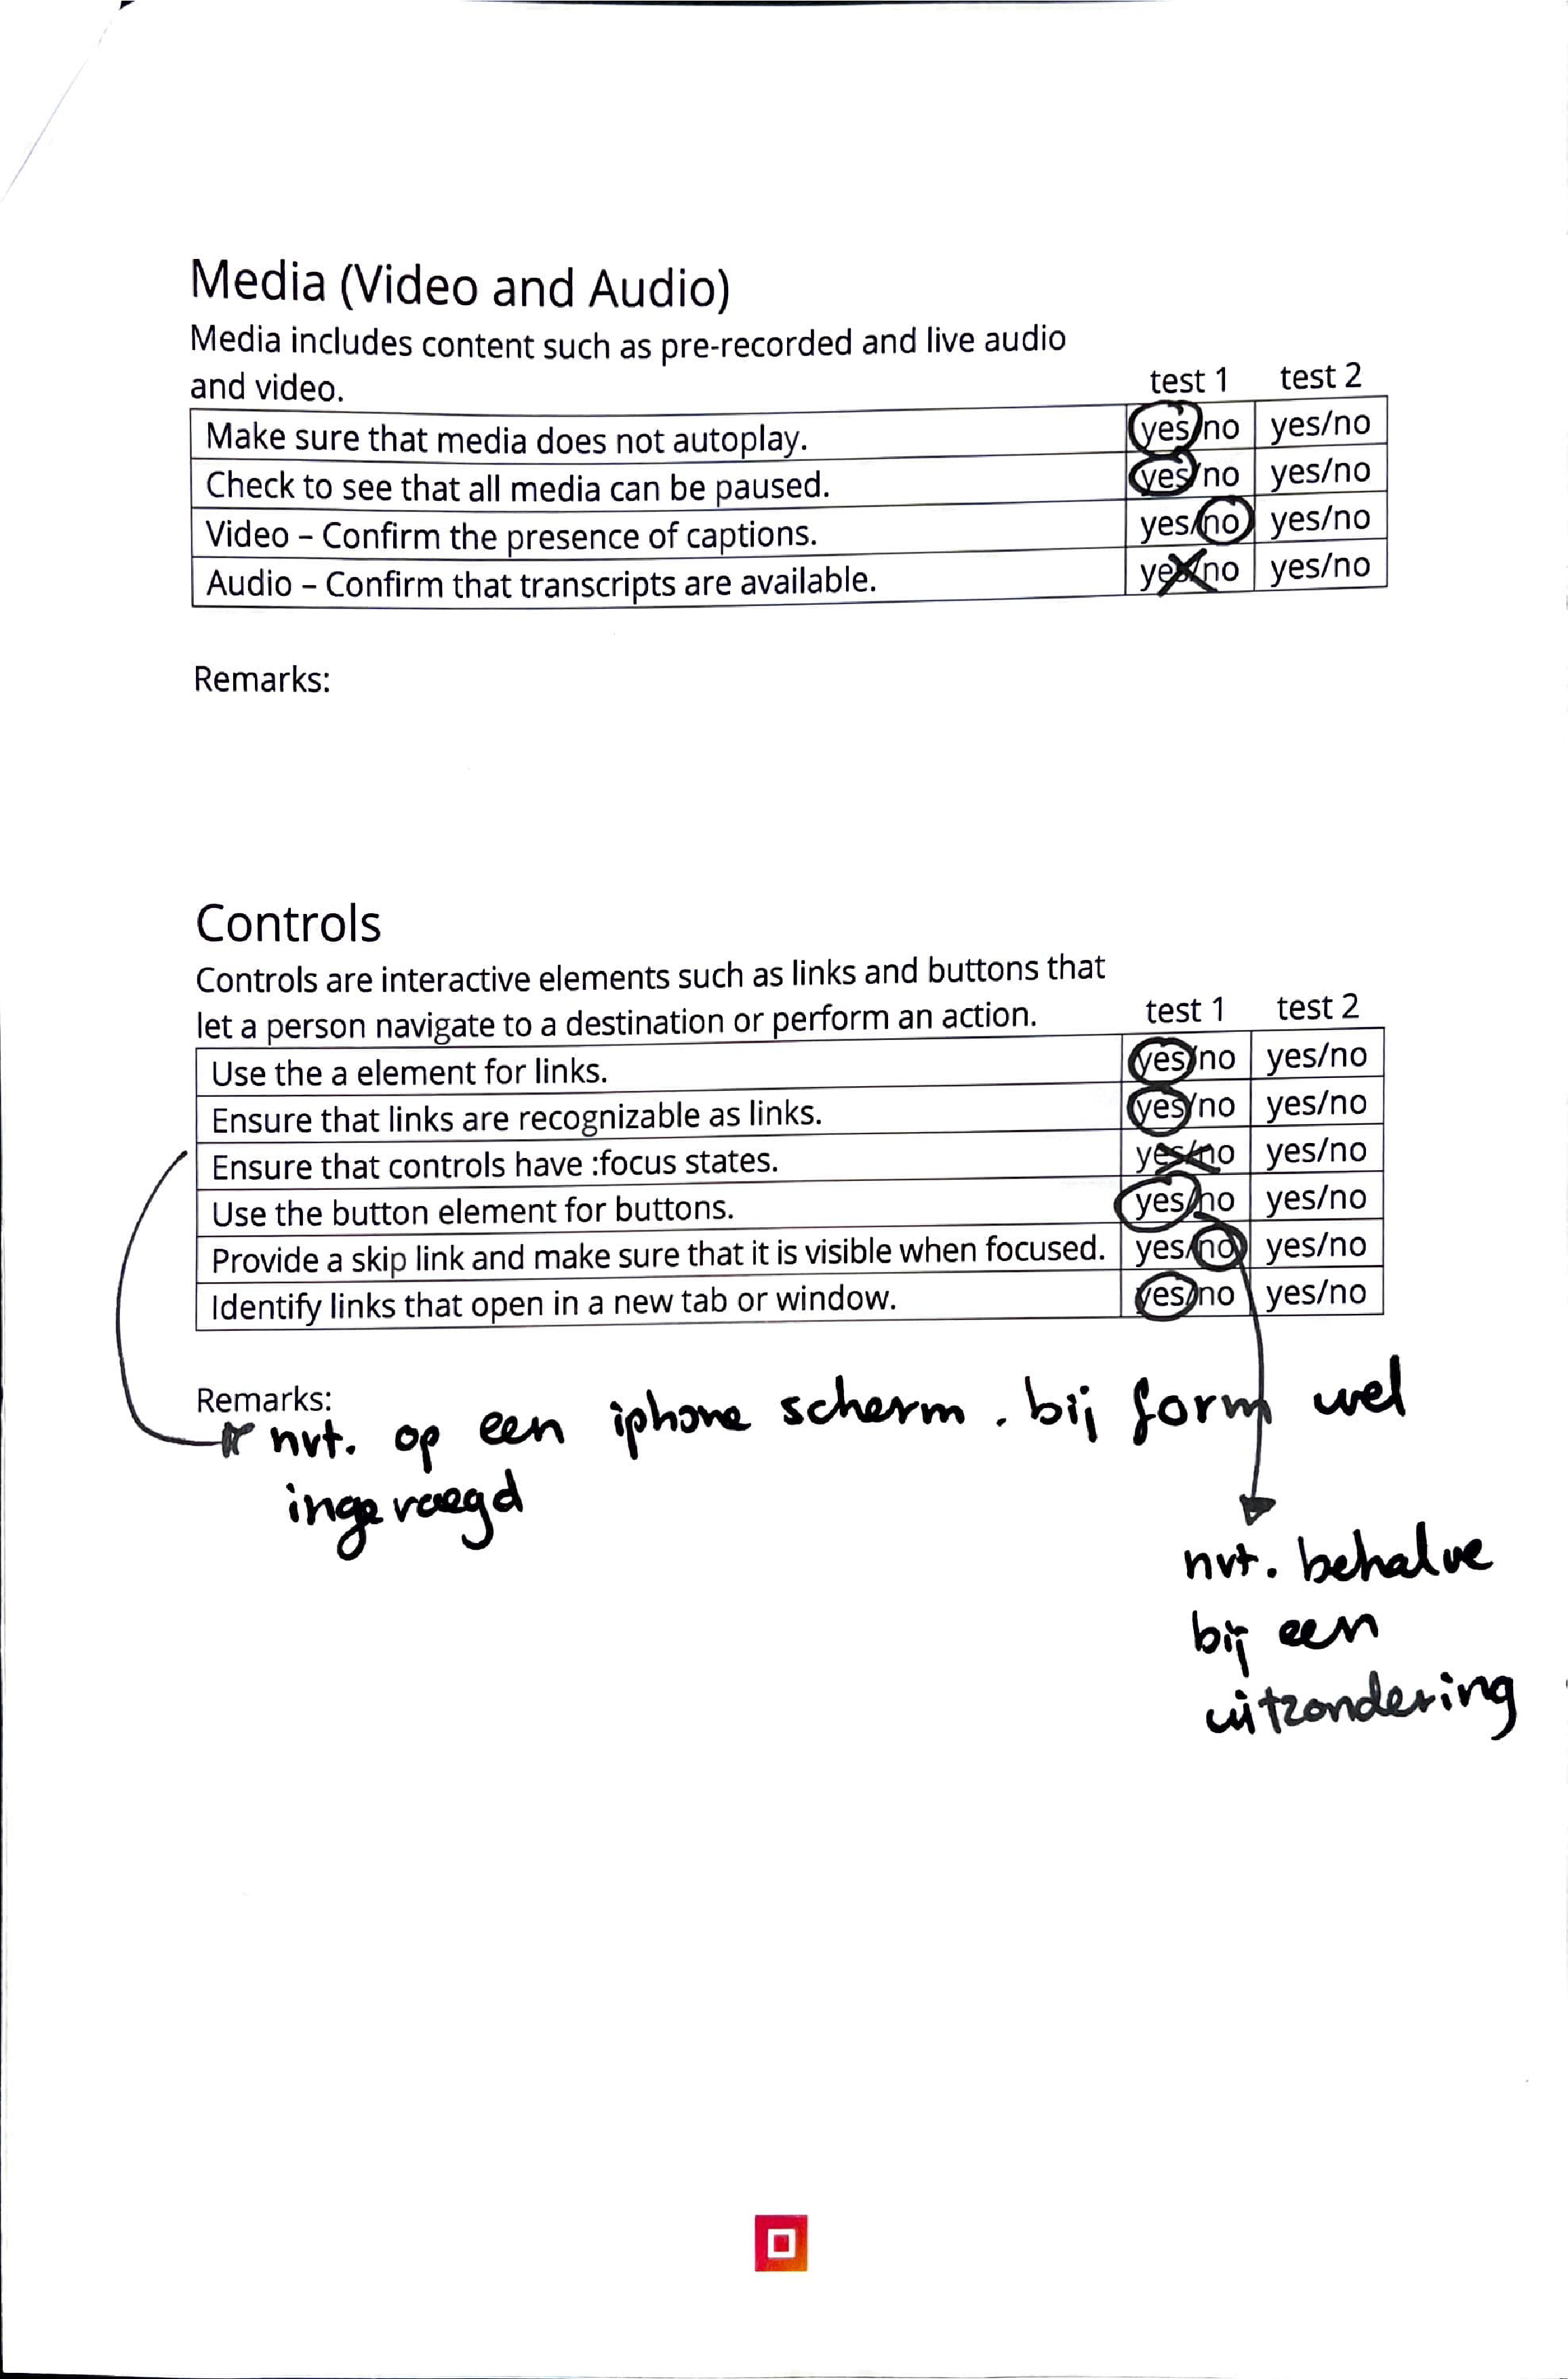 Media (Video and Audio)
Media includes content such as pre-recorded and live audio
and video.
test 1 test 2
Make sure that media does not autoplay. yes/no yes/no
Check to see that all media can be paused. yes/no yes/no
Video – Confirm the presence of captions. yes/no yes/no
Audio – Confirm that transcripts are available. yes/no yes/no
Remarks:
Controls
Controls are interactive elements such as links and buttons that
let a person navigate to a destination or perform an action.
test 1 test 2
Use the a element for links. yes/no yes/no
Ensure that links are recognizable as links. yes/no yes/no
Ensure that controls have :focus states. yes/no yes/no
Use the button element for buttons. yes/no yes/no
Provide a skip link and make sure that it is visible when focused. yes/no yes/no
Identify links that open in a new tab or window. yes/no yes/no
Remarks:
nvt. op een iphone scherm. bij form wel
ingevoegd
nvt. behalve
bij een
uitzondering